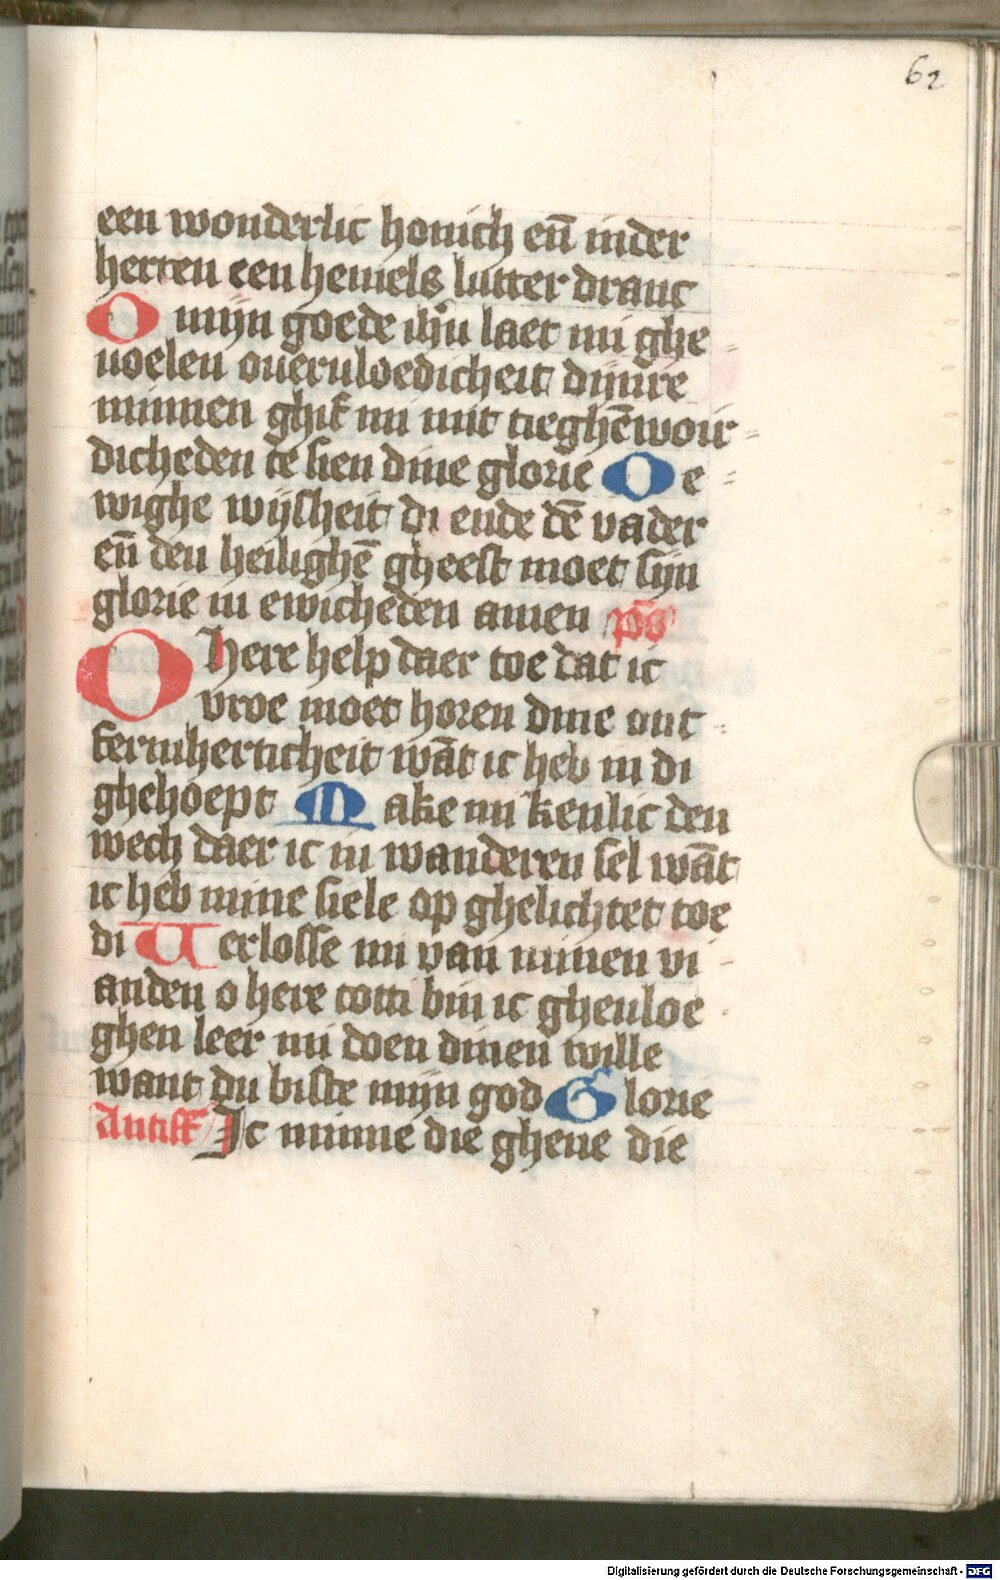 62
een wonderlic honich eñ inder
herten een hemels lutter dranc
O mijn goede ihu laet mi ghe-
uoelen oueruloedicheit dijnre
minnen ghif mi mit tieghēwoir-
dicheden te sien dine glorie O e-
wighe wijsheit di ende dē vader
eñ den heilighē gheest moet sijn
glorie in ewicheden amen ps
O here help daer toe dat ic
vroe moet horen dine ont-
fermherticheit wāt ic heb in di
ghehoept Make mi kenlic den
wech daer ic in wanderen sel wāt
ic heb mine siele op ghelichtet toe
di Uerlosse mi van minen vi-
anden o here totti bin ic gheuloe-
ghen leer mi doen dinen wille
want du biste mijn god Glorie
Antiff Ic minne die ghene die
Digitalisierung gefördert durch die Deutsche Forschungsgemeinschaft - DFG